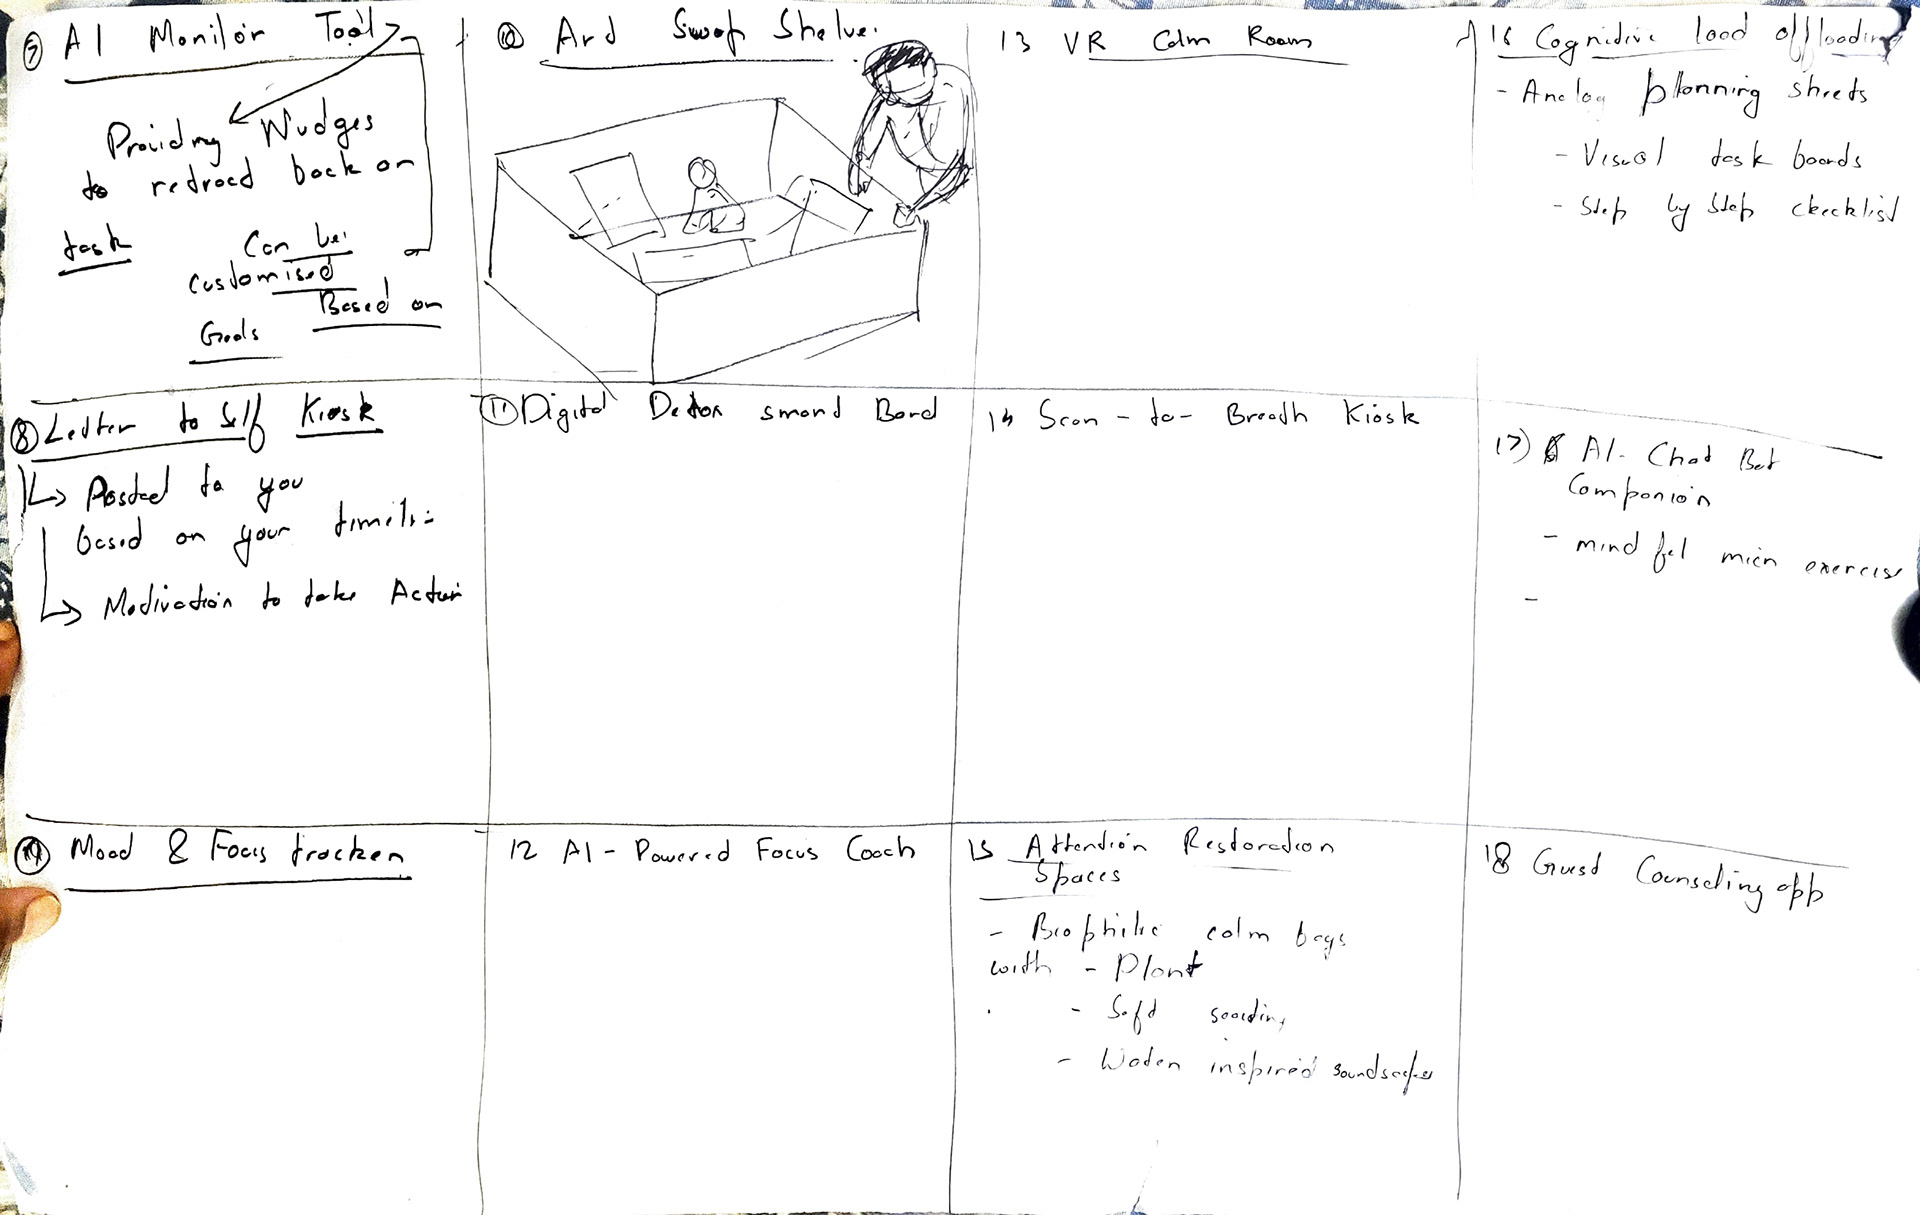 7 AI Monitor Tool
Providing Nudges
to redraed back on
task
Can be
customised
Based on
Goals
8 Letter to Self Kiosk
Posted to you
based on your
Motivation to take Action
Mood & Focus tracker
10 Art Swap Shelve.
11 Digital Detox smart Bord
12 AI-Powered Focus Coach
13 VR Calm Room
14 Scan-to-Breath Kiosk
15 Attention Restoration
Spaces
- Biophilic calm bays
with - Plant
- Soft
- Water inspired soundscapes
16 Cognitive load offloading
- Analog planning sheets
- Visual task boards
- Step by step checklist
17) AI-Chat Bot
Companion
- mind ful micro exercise
-
18 Guest Counseling app